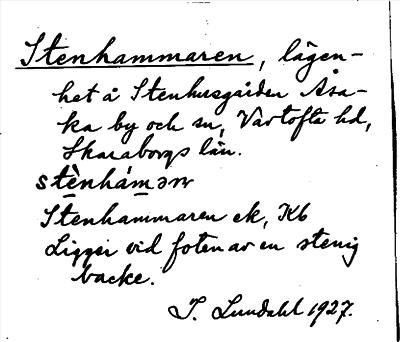 Stenhammaren, lägen-
het å Stenhusgården Åsa-
ka by och sn, Vartofta hd,
Skaraborgs län.
stènhámərn
Stenhammaren ek, Kb
Ligger vid foten av en stenig
backe.
J. Lundahl 1927.